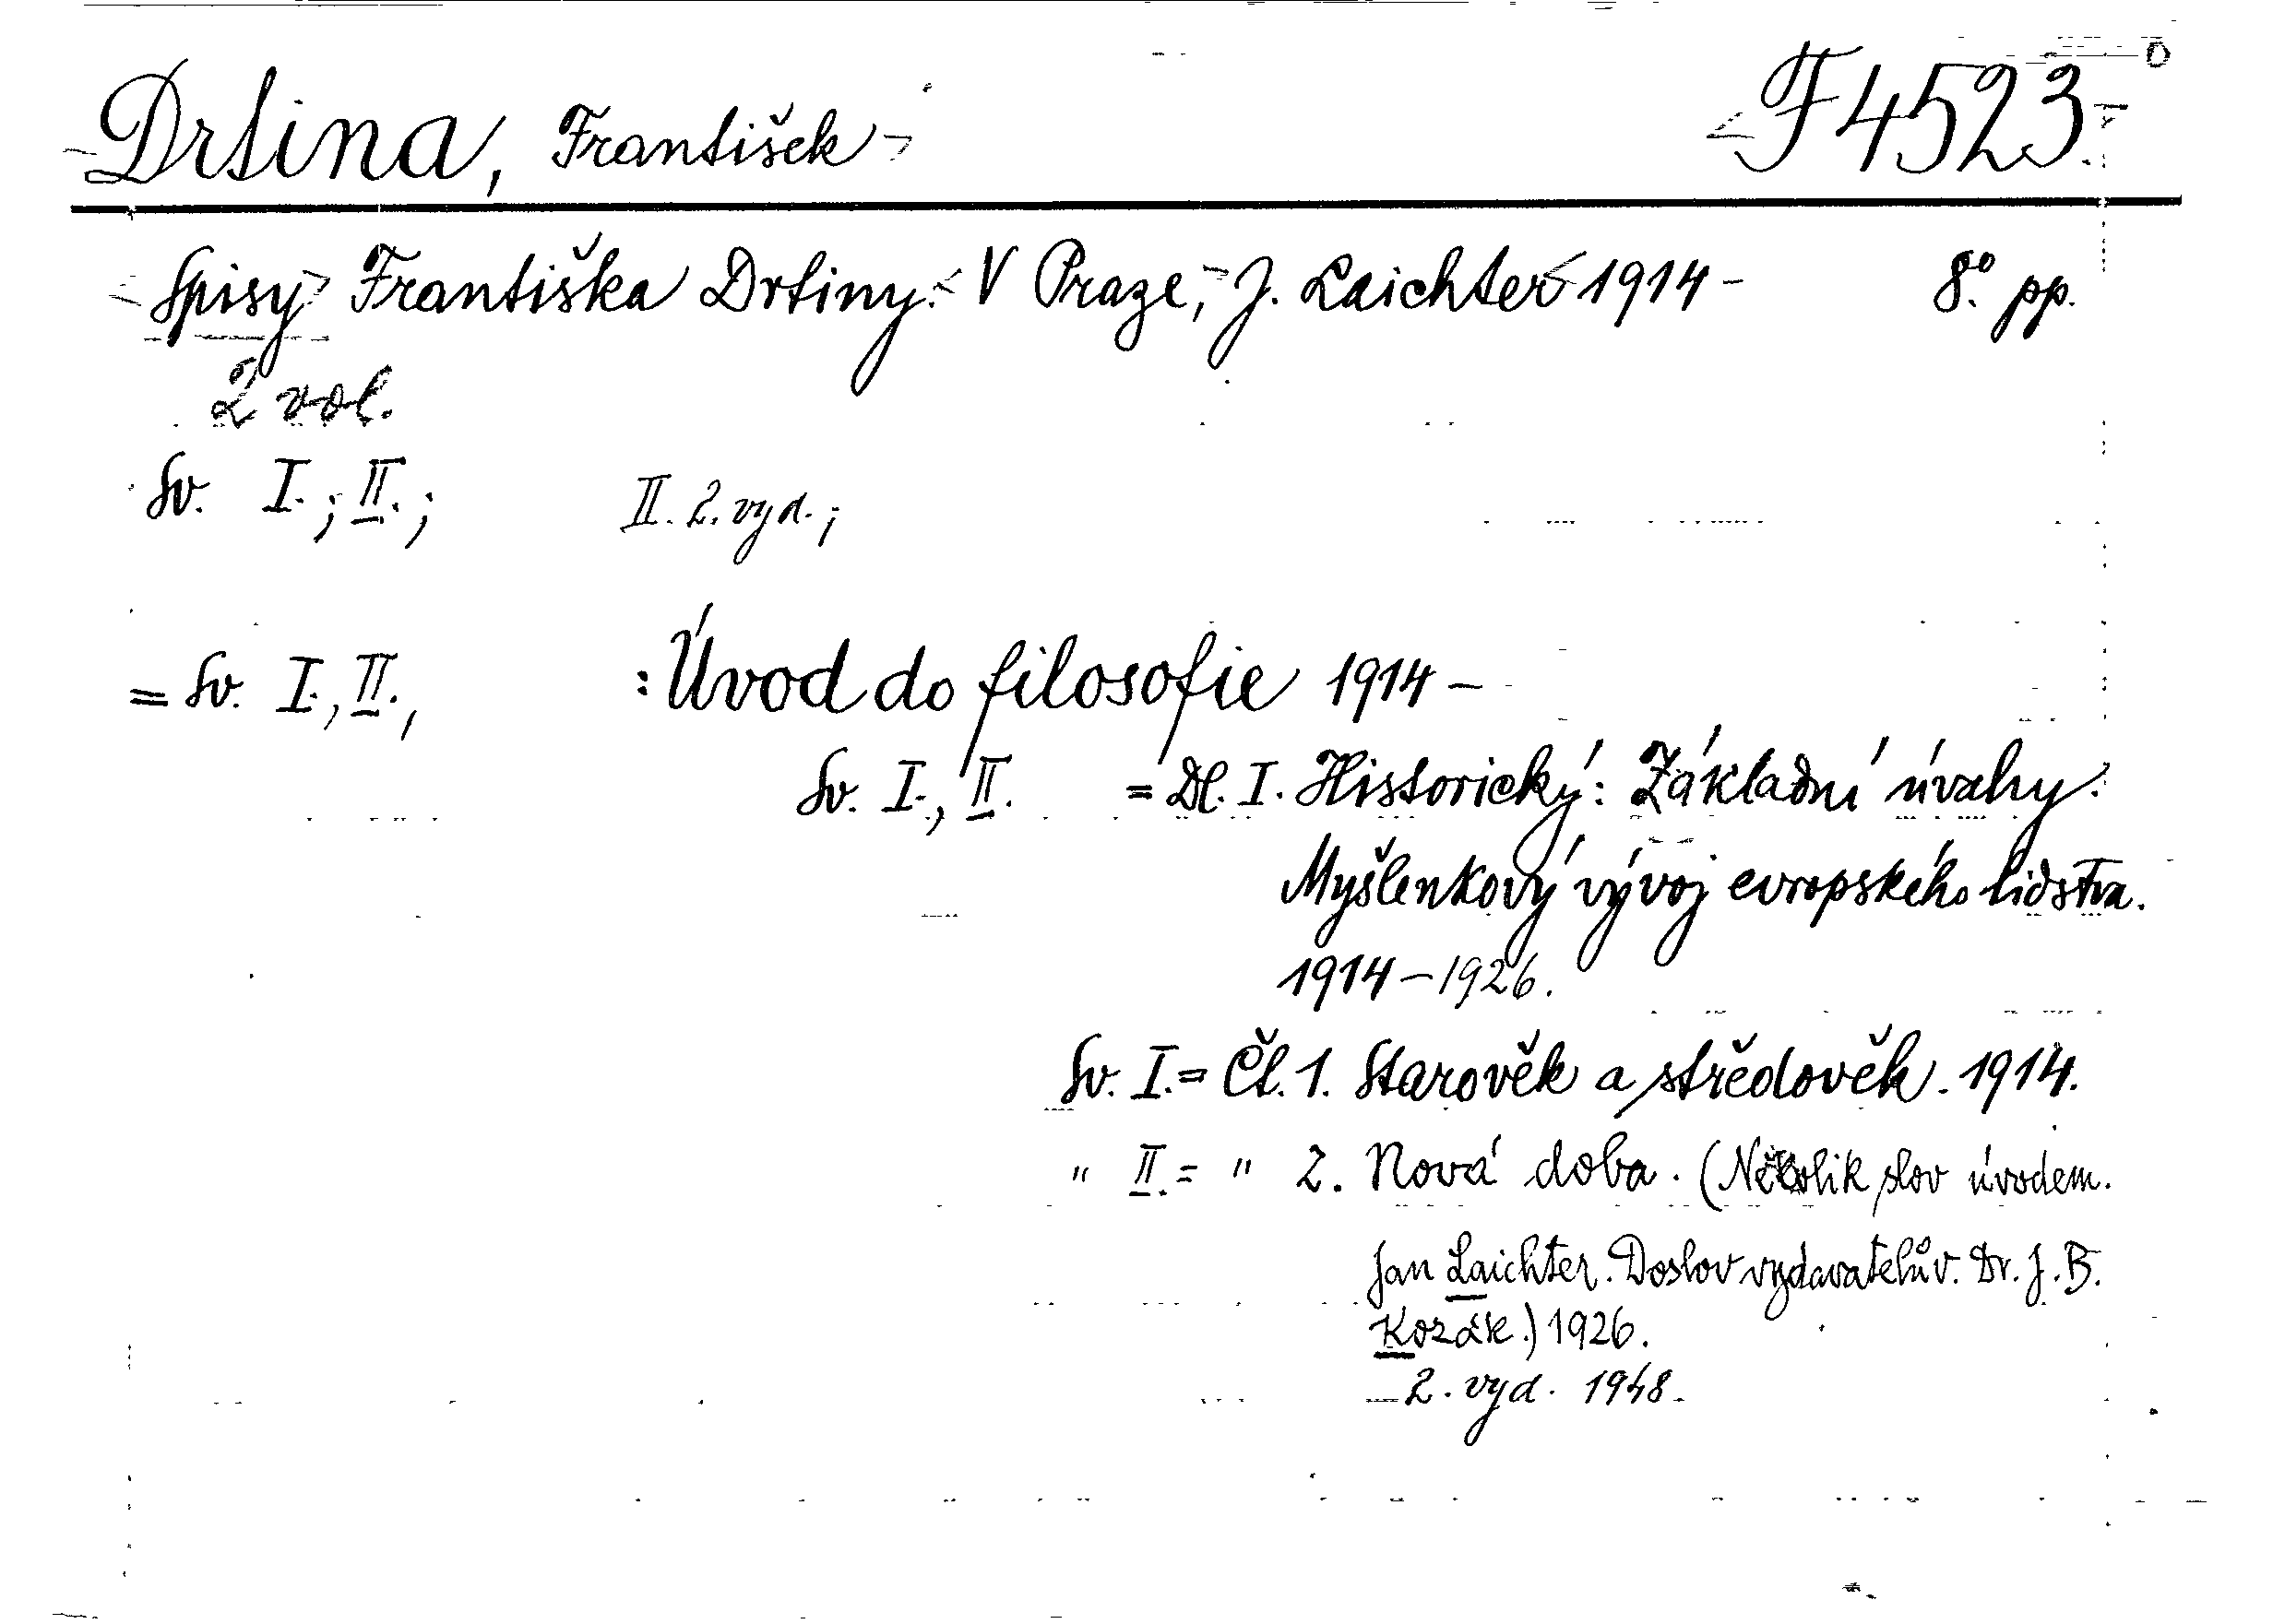 Drtina, František F 4523.
Spisy Františka Drtiny. V Praze, J. Laichter 1914 - 8º. pp.
2 vol.
Sv. I.; II.; II. 2. vyd.;
= Sv. I., II., : Úvod do filosofie 1914 -
Sv. I., II. = Dl. I. Historický: Základní úvahy.
Myšlenkový vývoj evropského lidstva.
1914 - 1926.
Sv. I. = Čt. 1. Starověk a středověk. 1914.
" II. = " 2. Nová doba. (Několik slov úvodem.
Jan Laichter. Doslov vydavatelův. Dr. J. B.
Kozák.) 1926.
2. vyd. 1948.